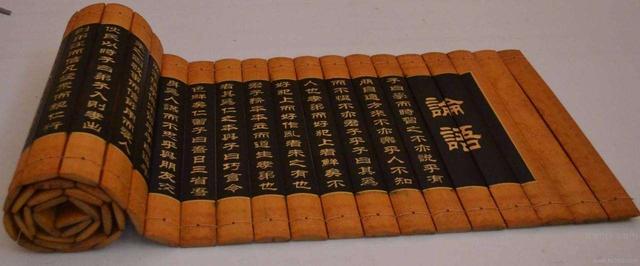 論語
子曰學而時習之不亦說乎有
朋自遠方來不亦樂乎人不知
而不慍不亦君子乎子曰其為
人也孝而好犯上者鮮矣不
好犯上而好作亂者未之有也
君子務本本立而道生孝弟也
者其為仁之本子曰巧言令
色鮮矣仁曾子曰吾日三省吾
身為人謀而不忠乎與朋友交
使民以時子曰弟子入則孝出
則弟謹而信汎愛眾而親仁行